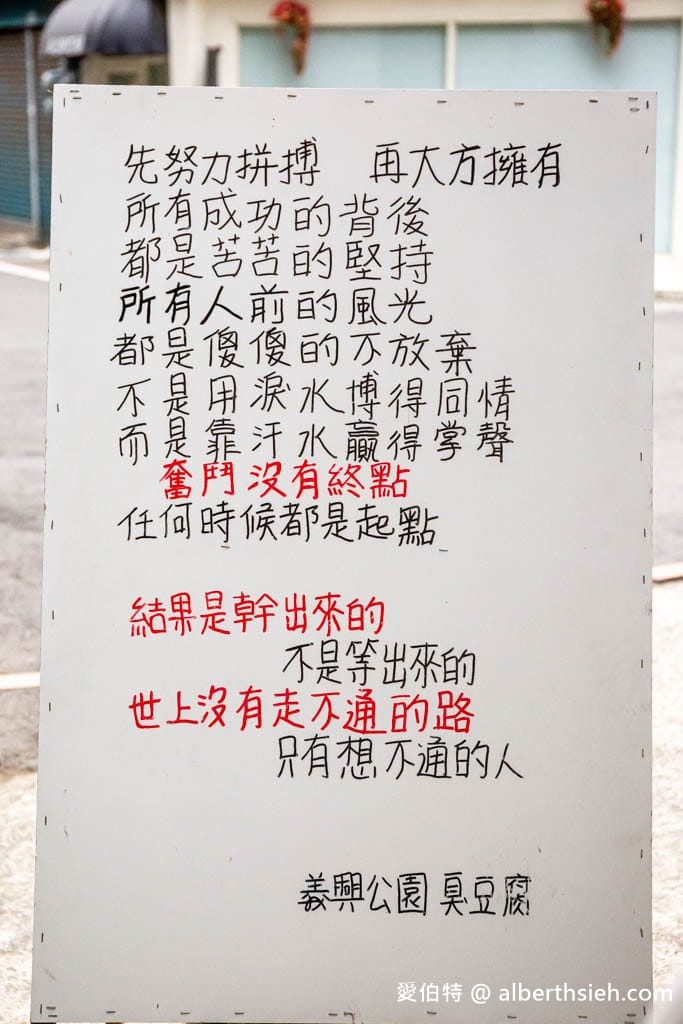 先努力拼搏　再大方擁有
所有成功的背後
都是苦苦的堅持
所有人前的風光
都是傻傻的不放棄
不是用淚水博得同情
而是靠汗水贏得掌聲
奮鬥沒有終點
任何時候都是起點
結果是幹出來的
不是等出來的
世上沒有走不通的路
只有想不通的人
義興公園 臭豆腐
愛伯特 @ alberthsieh.com